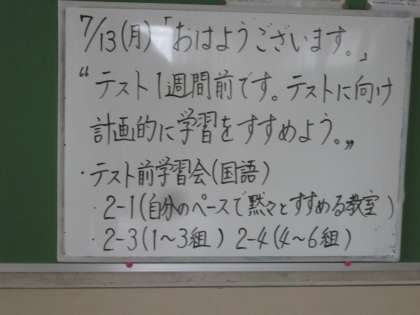 7/13(月)「おはようございます。」
“テスト1週間前です。テストに向け
計画的に学習をすすめよう。”
・テスト前学習会(国語)
・2-1(自分のペースで黙々とすすめる教室)
・2-3(1〜3組) 2-4(4〜6組)